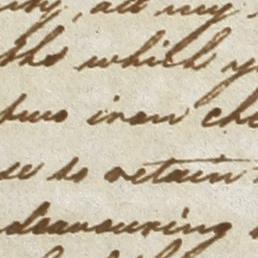 , all my
which y
two iron che
se to retain
ndeavouring